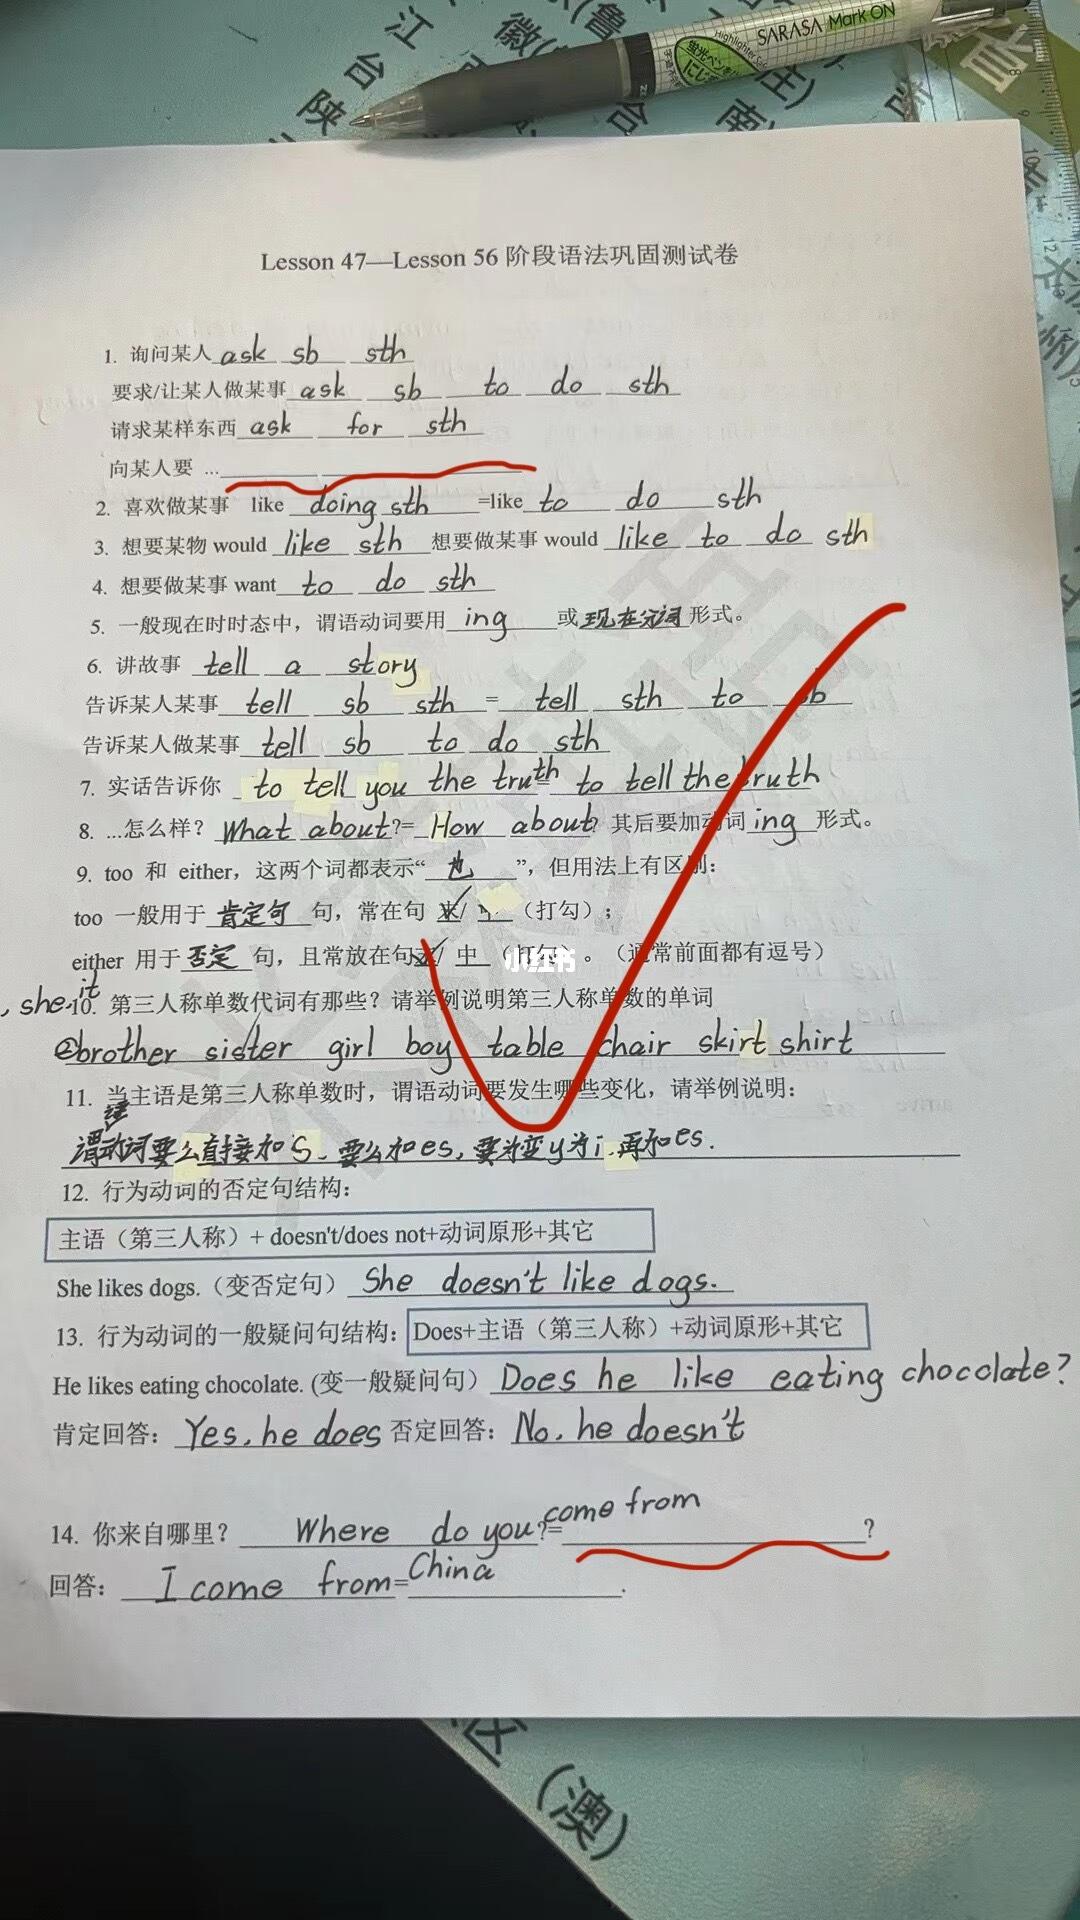 江
徽(
(鲁
台
陕
合
南
省
SARASA Mark ON
Lesson 47—Lesson 56 阶段语法巩固测试卷
1. 询问某人 ask sb sth
要求/让某人做某事 ask sb to do sth
请求某样东西 ask for sth
向某人要 ...
2. 喜欢做某事 like doing sth =like to do sth
3. 想要某物 would like sth 想要做某事 would like to do sth
4. 想要做某事 want to do sth
5. 一般现在时时态中，谓语动词要用 ing 或 现在分词 形式。
6. 讲故事 tell a story
告诉某人某事 tell sb sth = tell sth to sb
告诉某人做某事 tell sb to do sth
7. 实话告诉你 to tell you the truth = to tell the truth
8. ...怎么样？ What about?= How about? 其后要加动词 ing 形式。
9. too 和 either，这两个词都表示“ 也 ”，但用法上有区别：
too 一般用于 肯定句 句，常在句 末/ 中 （打勾）；
either 用于 否定 句，且常放在句 末/ 中 （打勾）。（通常前面都有逗号）
小红书
, she it
10. 第三人称单数代词有那些？请举例说明第三人称单数的单词
②brother sister girl boy table chair skirt shirt
11. 当主语是第三人称单数时，谓语动词要发生哪些变化，请举例说明：
谓语动词要么直接加s、要么加es，要么变y为i，再加es.
12. 行为动词的否定句结构：
主语（第三人称）+ doesn't/does not+动词原形+其它
She likes dogs.（变否定句） She doesn't like dogs.
13. 行为动词的一般疑问句结构： Does+主语（第三人称）+动词原形+其它
He likes eating chocolate. (变一般疑问句） Does he like eating chocolate?
肯定回答： Yes, he does 否定回答： No, he doesn't
14. 你来自哪里？ Where do you ?= come from ?
回答： I come from = China .
区（澳）